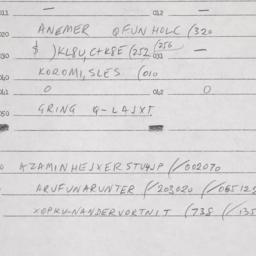 011 — 012 —
020 ANEMER QFUNHOLC (320
030 $ ) KL8U, C+K8E (252 (256 031 —
040 KOROMI, SLES (010
041 0 042 0
050 GRING Q-LAJXT
AZAMINHEJXERSTU4JP (/002070
ARUFUNARUNTER (/203020 (/065125
XOPKU-NANDERVORTNIT (738 (/135